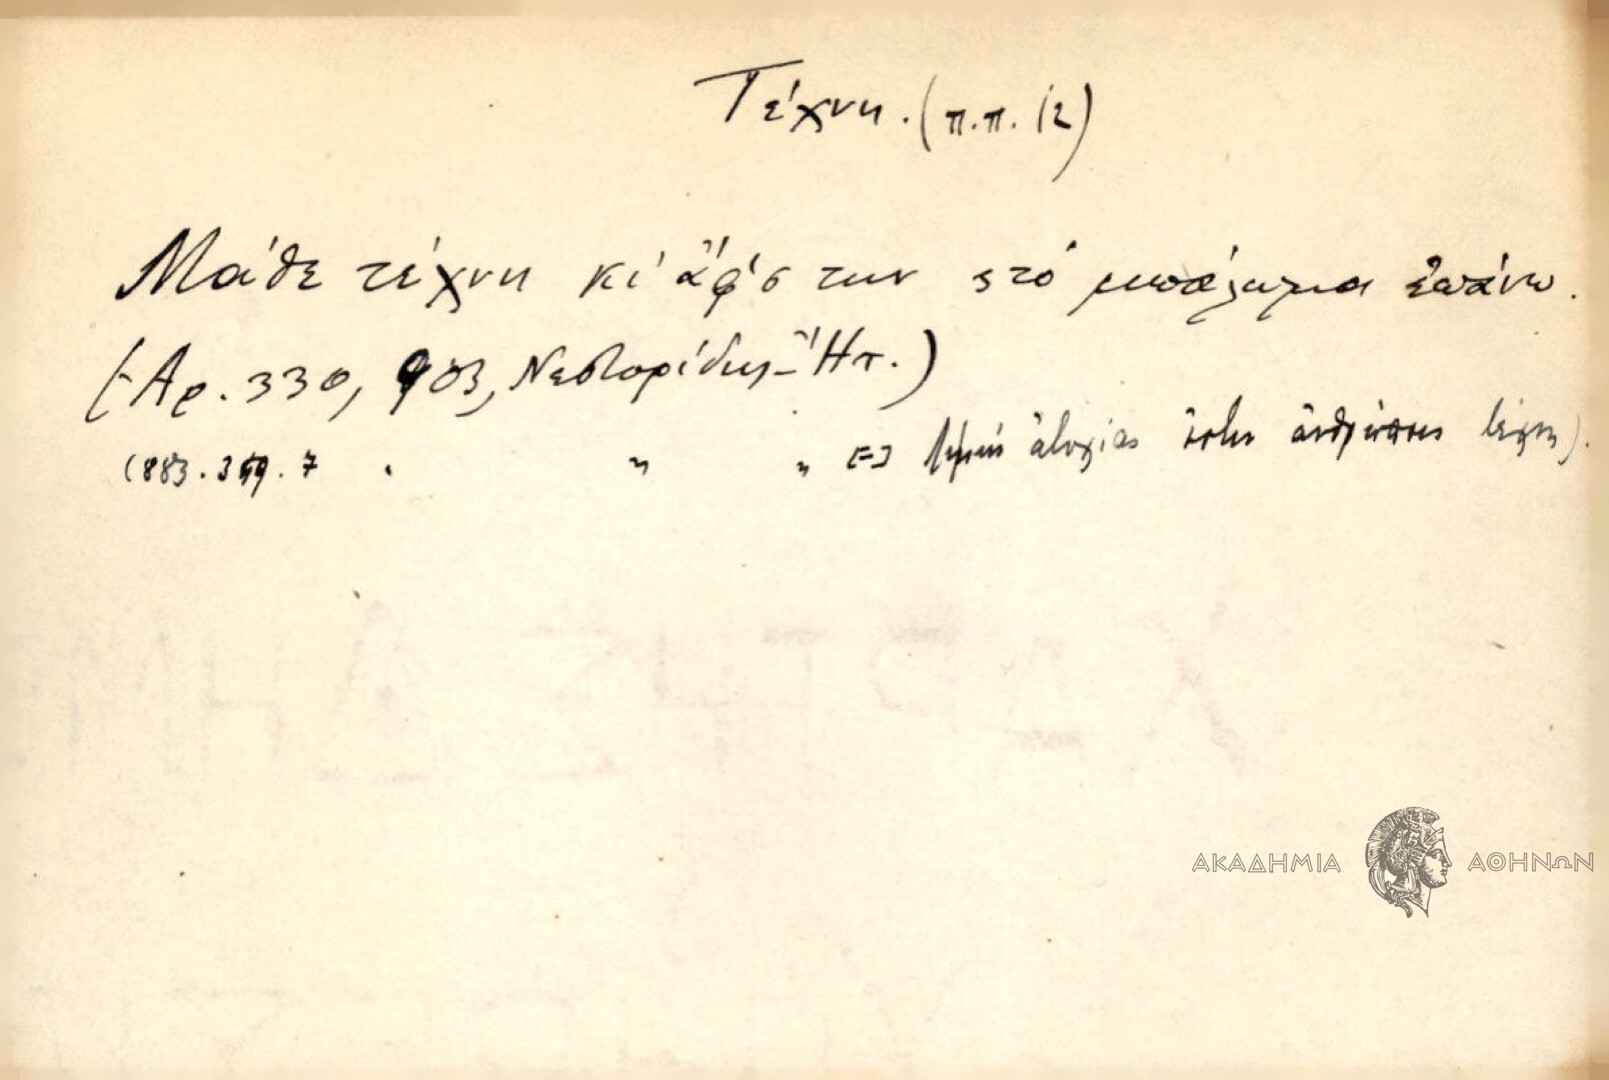 Τέχνη. (π.π. 12)
Μάθε τέχνη κι' ἄφ'σ την στό μπάλωμα ἐπάνω.
(Ἀρ. 330, 903, Νεστορίδης - Ἤπ.)
(883. 7 " " " [=] ἀτυχίας ἀνθρώπους
ΑΚΑΔΗΜΙΑ ΑΘΗΝΩΝ